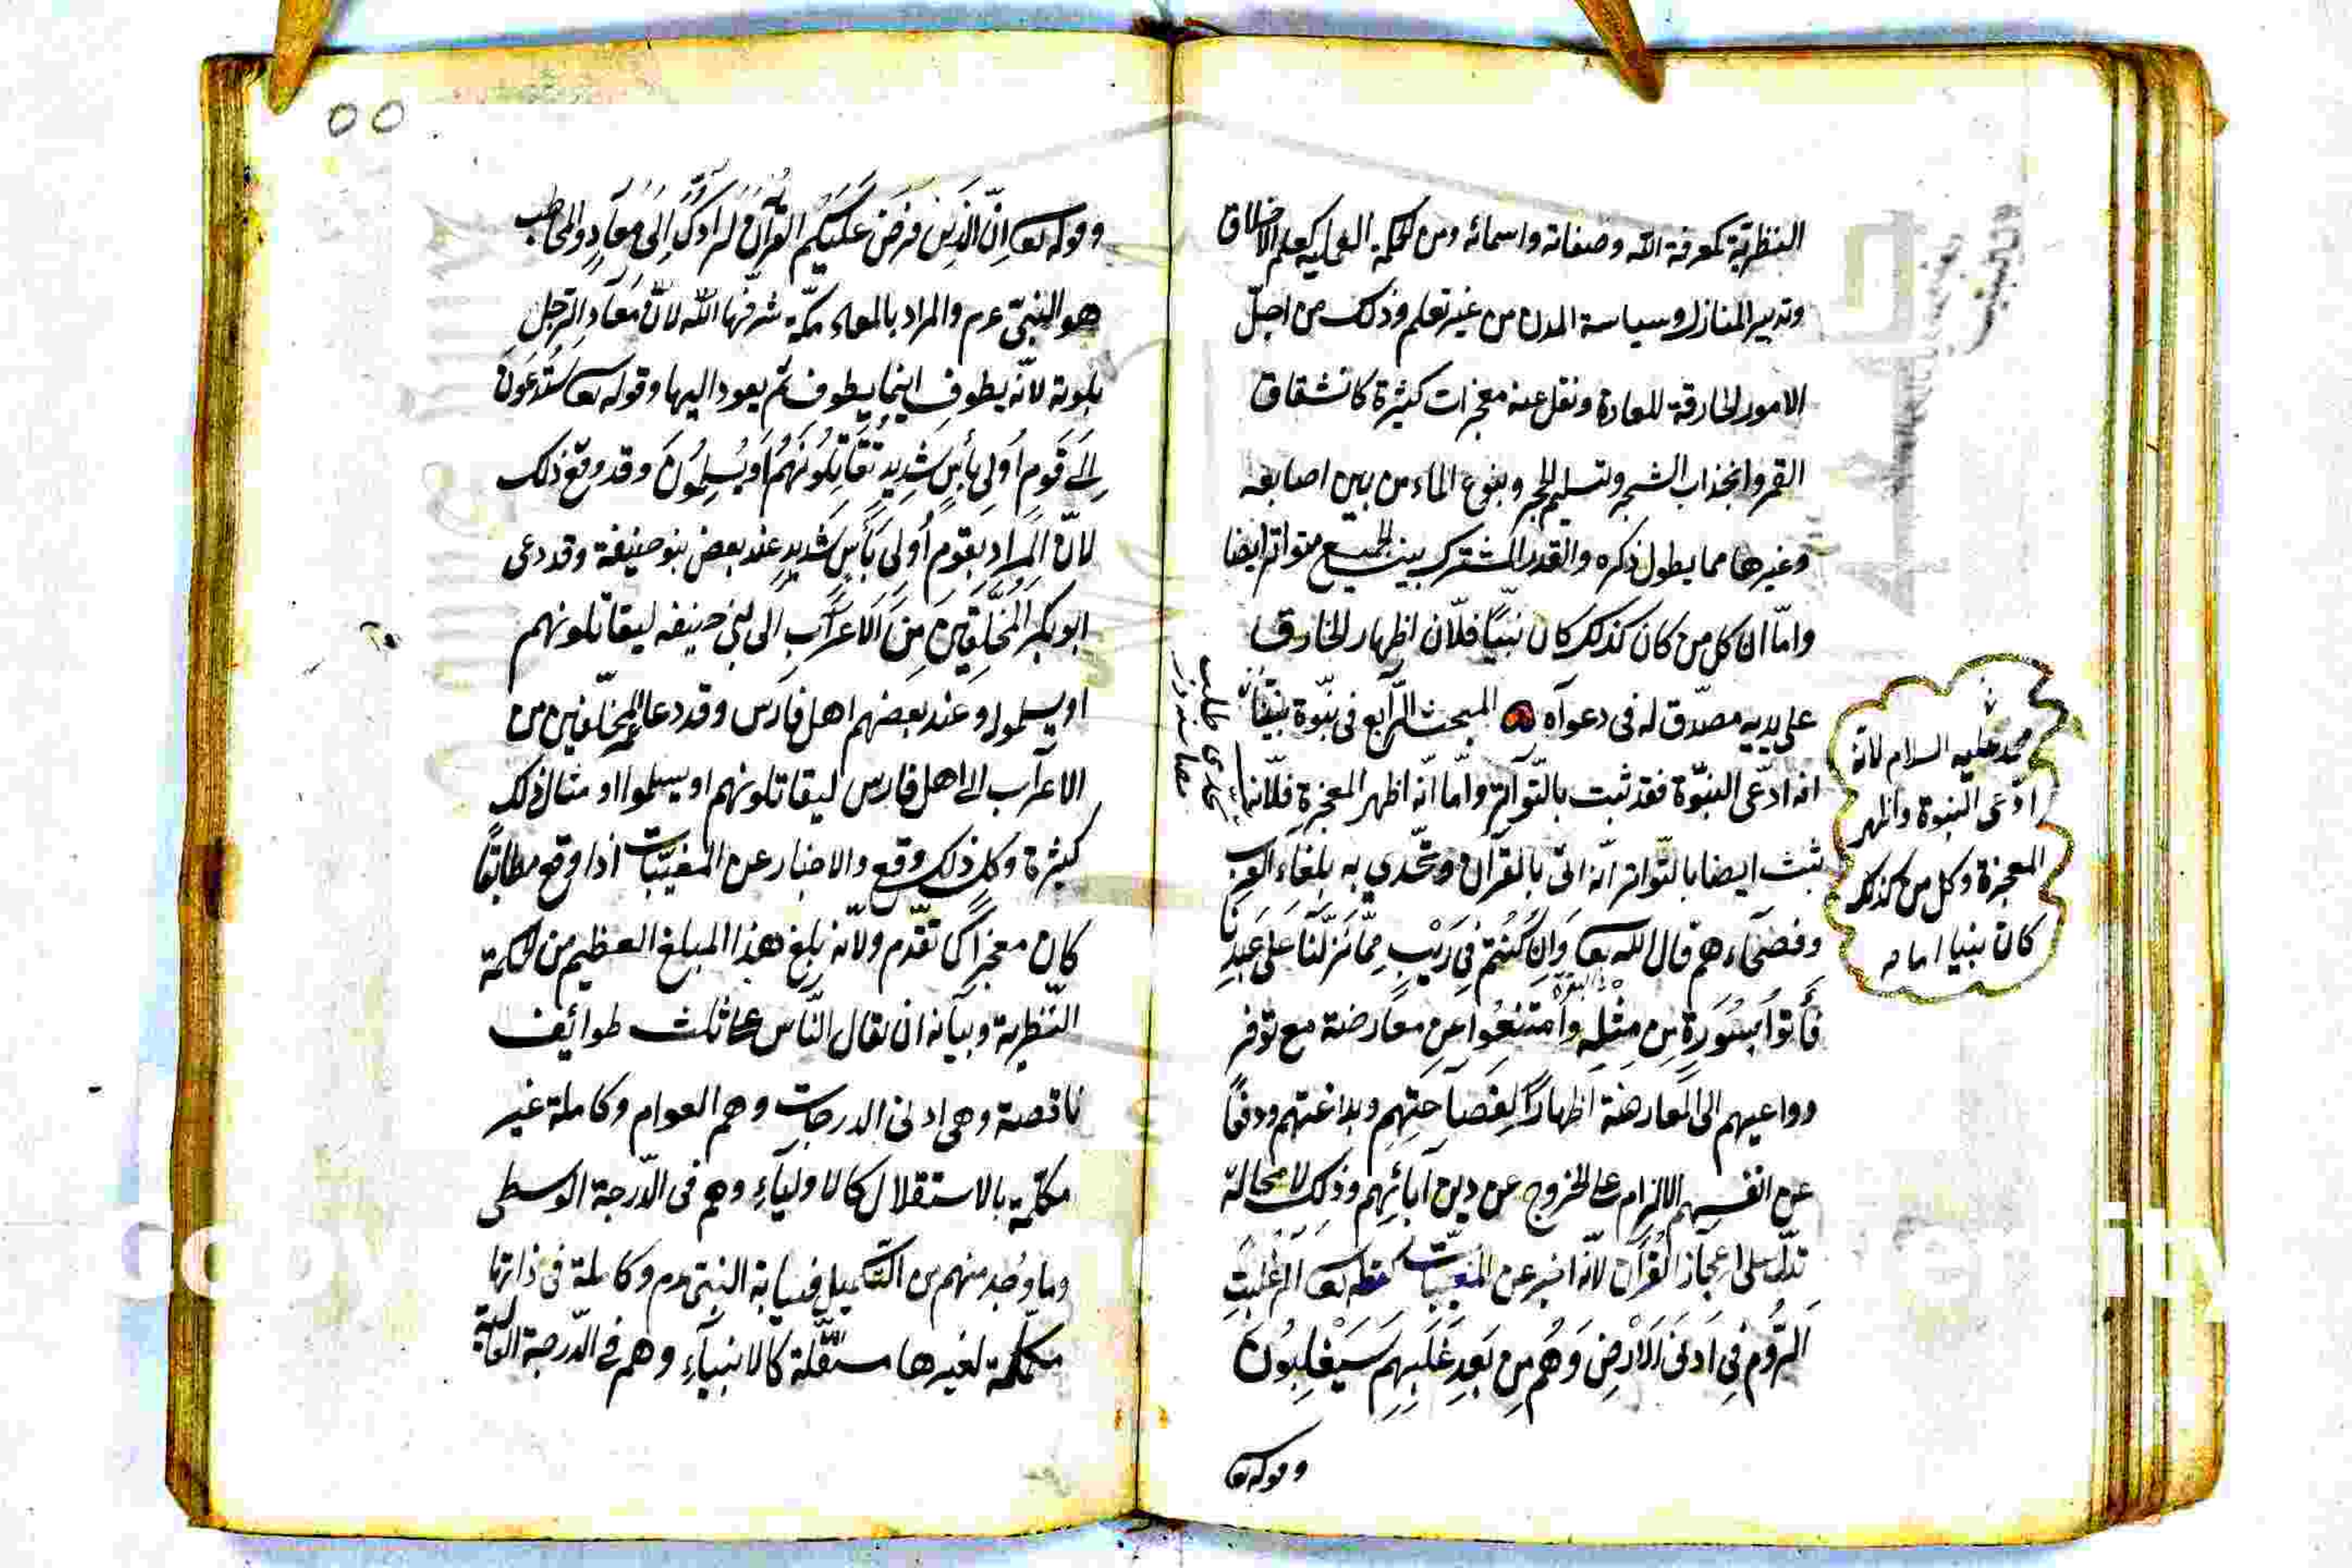 النظرية كمعرفة الله وصفاته واسمائه ومن الحكمة العملية كعلم الاخلاق
وتدبير المنازل وسياسة المدن من غير تعلم وذلك من اجلّ
الامور الخارقة للعادة ونقل عنه معجزات كثيرة كانشقاق
القمر وانجذاب الشجر وتسليم الحجر وينبوع الماء من بين اصابعه
وغيرها مما يطول ذكره والقدر المشترك بين الجميع متواتر ايضا
وامّا ان كل من كان كذلك كان نبيّا فلانّ اظهار الخارق
على يديه مصدّق له في دعواه المبحث الرّابع في نبّوة نبيّنا
محمد عليه السلام لانّه
ادّعى النبوة واظهر
المعجزة وكل من كذلك
كان نبيا اما
انه ادّعى النبّوة فقد ثبت بالتّواتر وامّا انّه اظهر المعجزة فلانّه
تحدى طلب
ثبت ايضا بالتّواتر انّه اتى بالقرآن وتحّدي به بلغاء العرب
وفصحاءهم قال الله تعا وَاِن كُنتُم فِي رَيْبٍ مِمّا نَزّلنَا عَلى عَبدِنَا
فَأتوا بِسُورَةٍ مِن مِثلِه وامتنعُوا عن معارضة مع توفر
دواعيهم الى المعارضة اظهارًا لِفصاحتِهِم وبلاغتهم ودفعًا
عن انفسهم الالزام على الخروج عن دين آبائهم وذلك لا محالة
تدلّ على اعجاز القرآن لانّه اخبر عن المغيبات كقوله تعا الم غُلبَتِ
الرّومُ فِي اَدنَى الاَرْضِ وَهُم مِن بَعدِ غَلَبِهِم سَيَغلِبُونَ
وقوله تعا
٥٥
وقوله تعا اِنّ الّذي فَرَضَ عَلَيكَ القُرآنَ لَرادّكَ اِلى مَعادٍ والمخاطب
هو النبيّ عم والمراد بالمعاد مكّة شرفها الله لانّ مَعادِ الرّجل
بلدته لانّه يطوف اينما يطوف ثم يعود اليها وقوله تعا سَتُدعَونَ
اِلى قَومٍ اُولي بَأسٍ شَدِيدٍ تُقَاتِلُونَهُم اَو يُسلِمُونَ وقد وقع ذلك
لانّ المراد بقوم اُولي بَأسٍ شَديدٍ عند بعض بنو حنيفة وقد دعى
ابو بكر المُخَلَّفِينَ مِنَ الاَعرابِ الى بني حنيفه ليقاتلونهم
او يسلموا وعند بعضهم اهل فارس وقد دعا عمر المخلّفين من
الاعراب الى اهل فارس ليقاتلونهم او يسلموا وامثال ذلك
كثيرة وكل ذلك وقع والاخبار عن المغيّبات اذا وقع مطابقًا
كان معجزا كما تقدّم ولانّه بلغ هذا المبلغ العظيم من الحكمة
النّظرية وبيانه ان يقال النّاس على ثلث طوائف
ناقصة وهي ادنى الدرجات وهم العوام وكاملة غير
مكمّلة بالاستقلال كالاولياءِ وهم في الدّرجة الوسطى
وما وُجد منهم من التّكميل فنيابة النبيّ عم وكاملة في ذاتها
مكمّلة لغيرها مستقّلة كالانبياءِ وهم في الدّرجة العالية